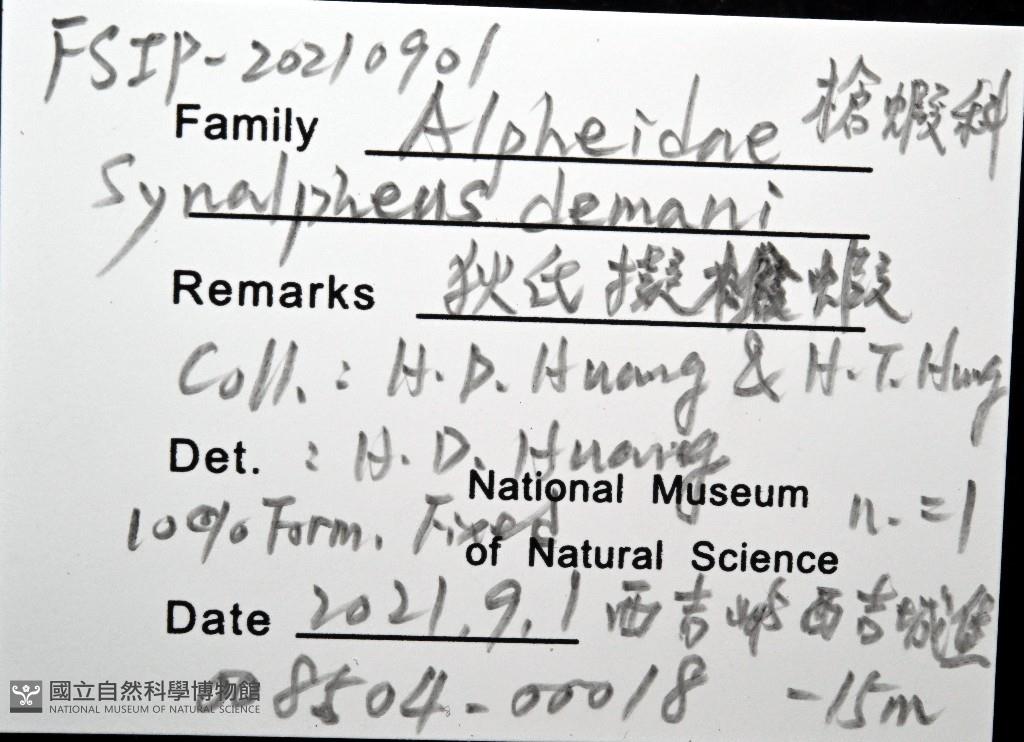 FSIP-20210901
Family Alpheidae 槍蝦科
Synalpheus demani
Remarks 狄氏擬槍蝦
Coll. : H. D. Huang & H. T. Hung
Det. : H. D. Huang
National Museum n. = 1
10% Form. Fixed
of Natural Science
Date 2021. 9. 1 西吉嶼西吉城進
8504-00018 -15m
國立自然科學博物館
NATIONAL MUSEUM OF NATURAL SCIENCE